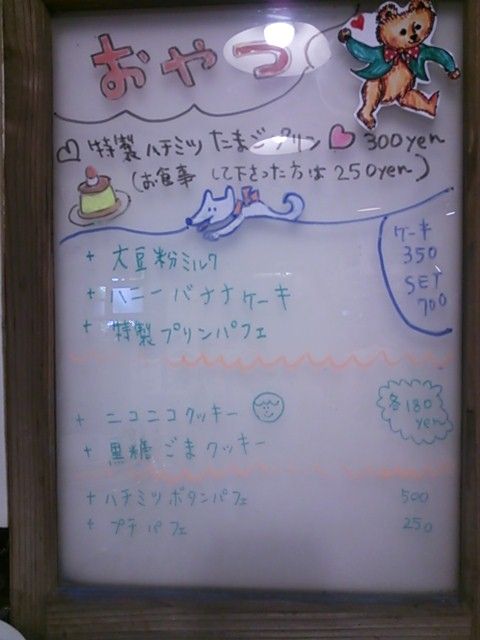 おやつ
特製ハチミツたまごプリン 300yen
(お食事して下さった方は250yen)
ケーキ
350
SET
700
+ 大豆粉ミルク
+ ハニーバナナケーキ
+ 特製プリンパフェ
+ ニコニコクッキー
各180
yen
+ 黒糖ごまクッキー
+ ハチミツボタンパフェ 500
+ プチパフェ 250